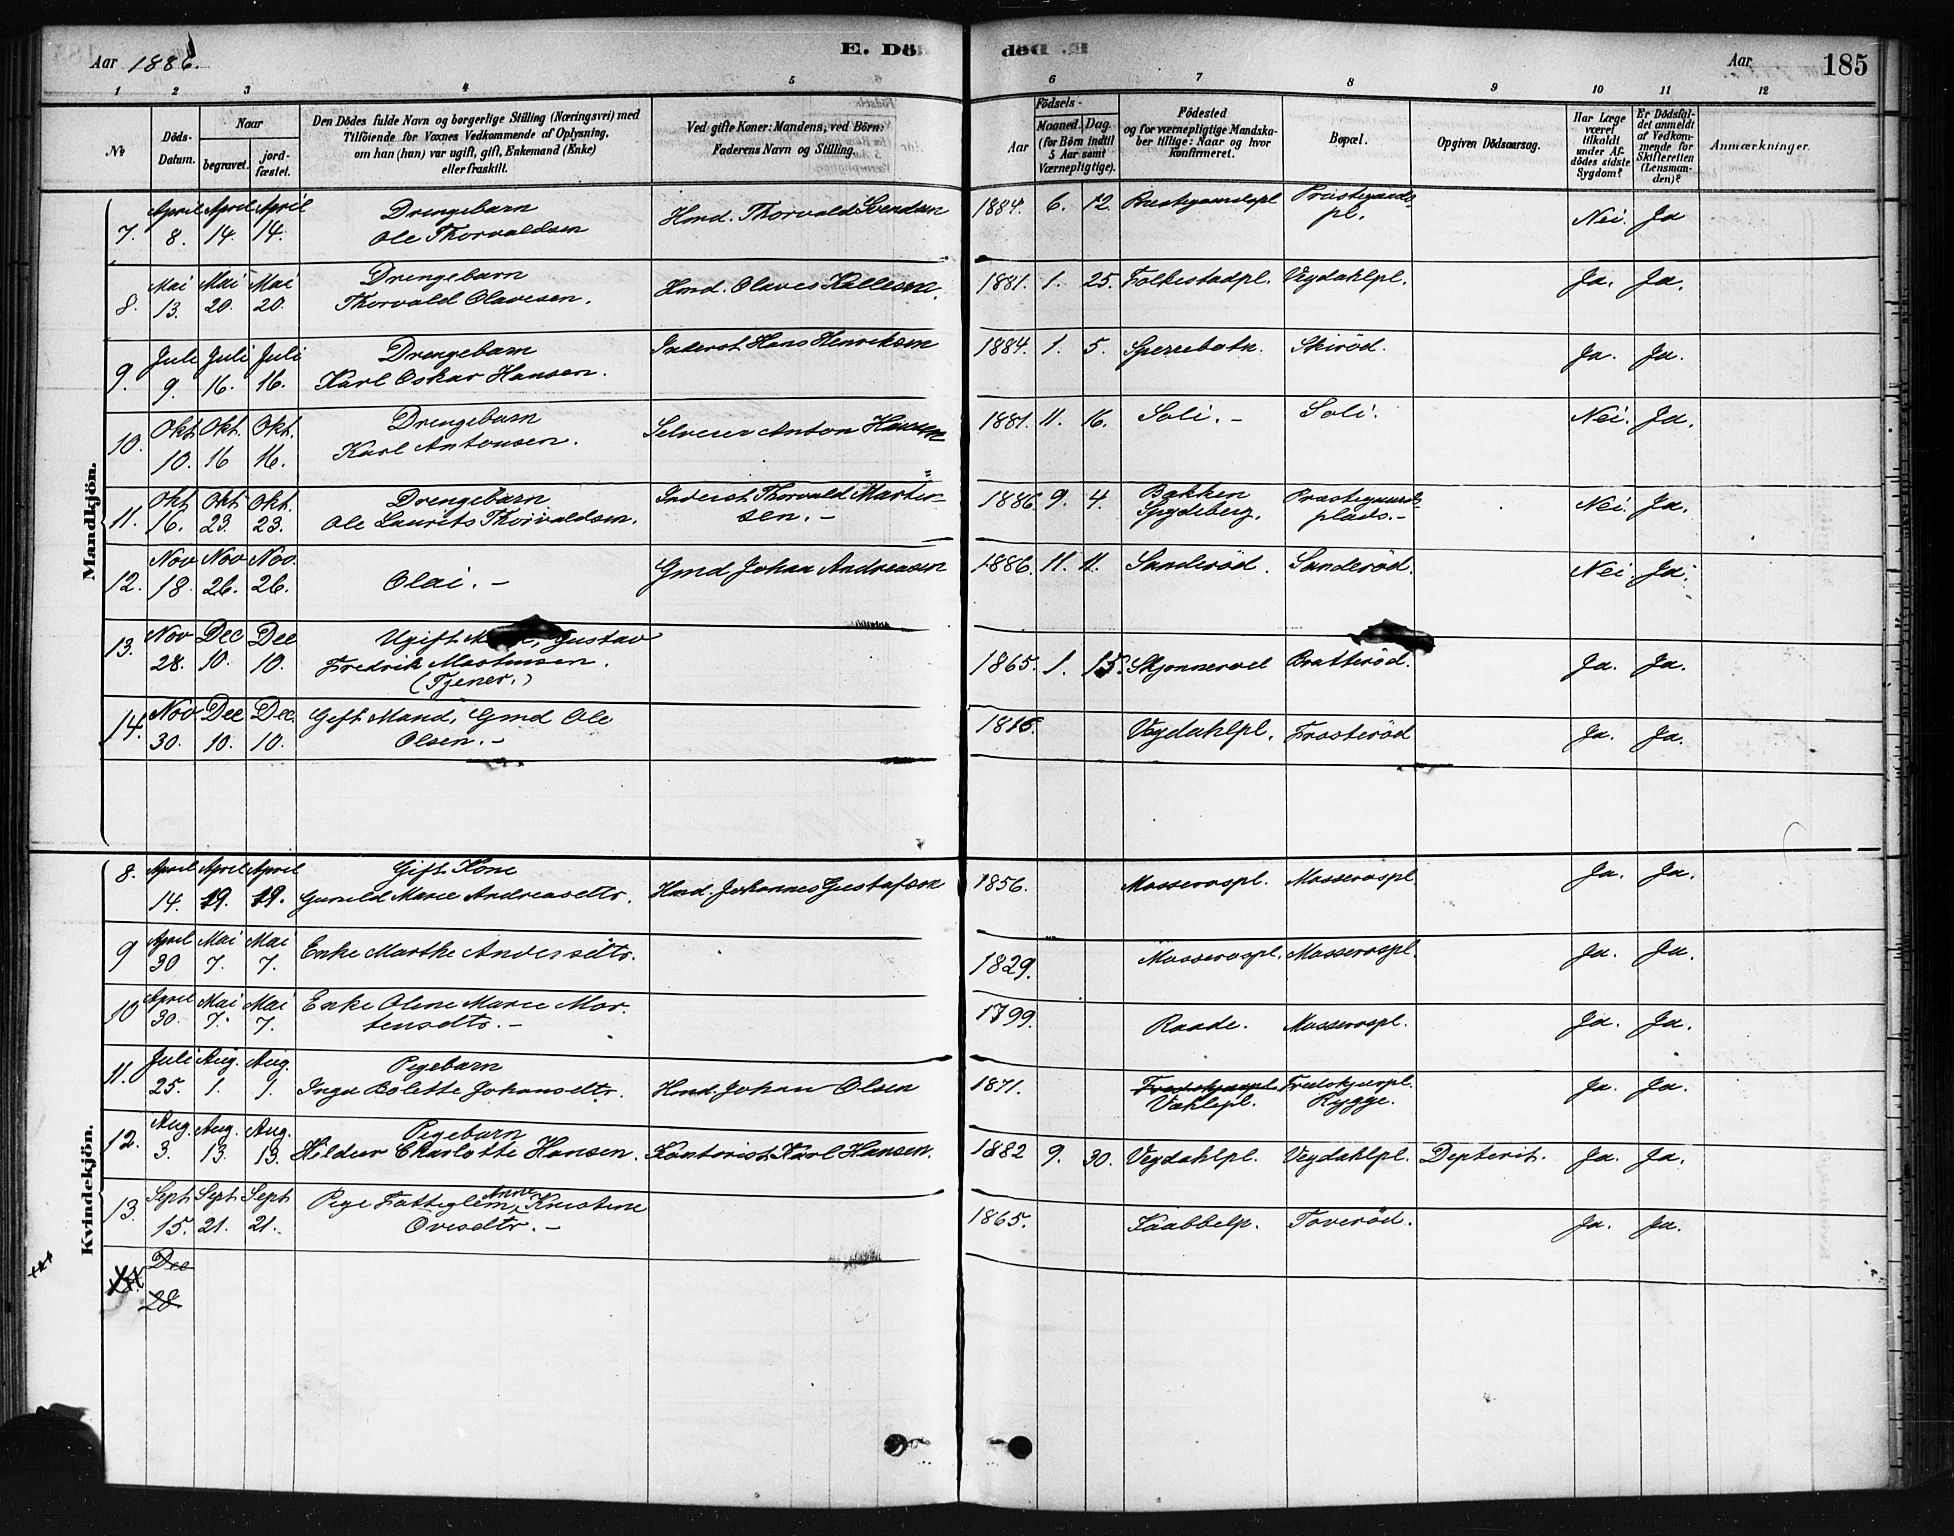 Aar 1886.
E. Dö
död
Aar
185
1 2 3 4 5 6 7 8 9 10 11 12
No
Döds-Datum.
Naar
begravet.
jord-fæstet.
Den Dödes fulde Navn og borgerlige Stilling (Næringsvei) med
Tilföiende for Voxnes Vedkommende af Oplysning,
om han (hun) var ugift, gift, Enkemand (Enke)
eller fraskilt.
Ved gifte Koner: Mandens, ved Börn:
Faderens Navn og Stilling.
Födsels-
Aar
Maaned. Dag.
(for Börn indtil
5 Aar samt
Værnepligtige).
Födested
og for værnepligtige Mandska-
ber tillige: Naar og hvor
Konfirmeret.
Bopæl.
Opgiven Dödsaarsag.
Har Læge
været
tilkaldt
under Af-
dödes sidste
Sygdom?
Er Dödsfal-
det anmeldt
af Vedkom-
mende for
Skifteretten
(Lensman-
den)?
Anmærkninger.
Mandkjön.
7. April 8. April 14. April 14. Drengebarn Ole Thorvaldsen Hmd. Thorvald Svendsen 1884. 6. 12. Præstegaardspl Præstegaardspl. Nei Ja
8. Mai 13. Mai 20. Mai 20. Drengebarn Thorvald Olavesen. Hmd. Olaves Kallesen. 1881. 1. 25. Folkestadpl. Vegdahlpl. Ja. Ja.
9. Juli 9. Juli 16. Juli 16. Drengebarn Karl Oskar Hansen. Inderst Hans Henriksen 1884. 1. 5. Sperrebotn. Skiröd. Ja. Ja.
10. Okt. 10. Okt. 16 Okt. 16. Drengebarn Karl Antonsen. Selveier Anton Hansen 1881. 11. 16. Soli. - Soli. Nei. Ja.
11. Okt 16. Okt 23. Okt. 23. Drengebarn Ole Laurits Thorvaldsen. Inderst Thorvald Marten=sen. - 1886. 9. 4. Bakken Spydeberg. Præstegaards plads. - Nei. Ja.
12. Nov 18. Nov 26. Nov. 26. Olai. - Gmd Johan Andreasen 1886. 11. 11. Sanderöd. Sanderöd. Nei. Ja.
13. Nov 28. Dec 10. Dec 10. Ugift Gustav Fredrik Mortensen. (Tjener.) 1865. 1. 15. Bratteröd. Ja. Ja.
14. Nov 30. Dec 10. Dec. 10. Gift Mand, Gmd Ole Olsen. - 1815. Vegdahlpl. Frosteröd Ja. Ja.
Kvindekjön.
8. April 14. April 19. April 19. Gift Kone Gunild Marie Andreasdtr. Hmd. Johannes Gustafsen 1856. Mosserospl. Mosserospl. Ja. Ja.
9 April 30 Mai 7. Mai 7. Enke Marthe Andersdtr. 1829. Mosserospl. Mosserospl. Ja. Ja.
10 April 30. Mai 7. Mai 7. Enke Olene Marie Mor-tensdtr. - 1799. Raade. Mosserospl. Ja. Ja.
11. Juli 25. Aug. 1. Aug. 1. Pigebarn Inga Bolette Johansdtr. Hmd. Johan Olsen 1871. Vahlepl. Fredskjærpl. Rygge. Ja. Ja.
12. Aug. 3. Aug. 13. Aug. 13. Pigebarn Hildur Charlotte Hansen. Kontorist Karl Hansen. 1882 9. 30. Vegdahlpl. Vegdahlpl. Depterit. Ja. Ja.
13. Sept 15. Sept. 21. Sept 21. Pige Fattiglem, Anne Kristine Ovesdtr. - 1865. Saabbelp. Toveröd. Ja. Ja.
14. Dec 28